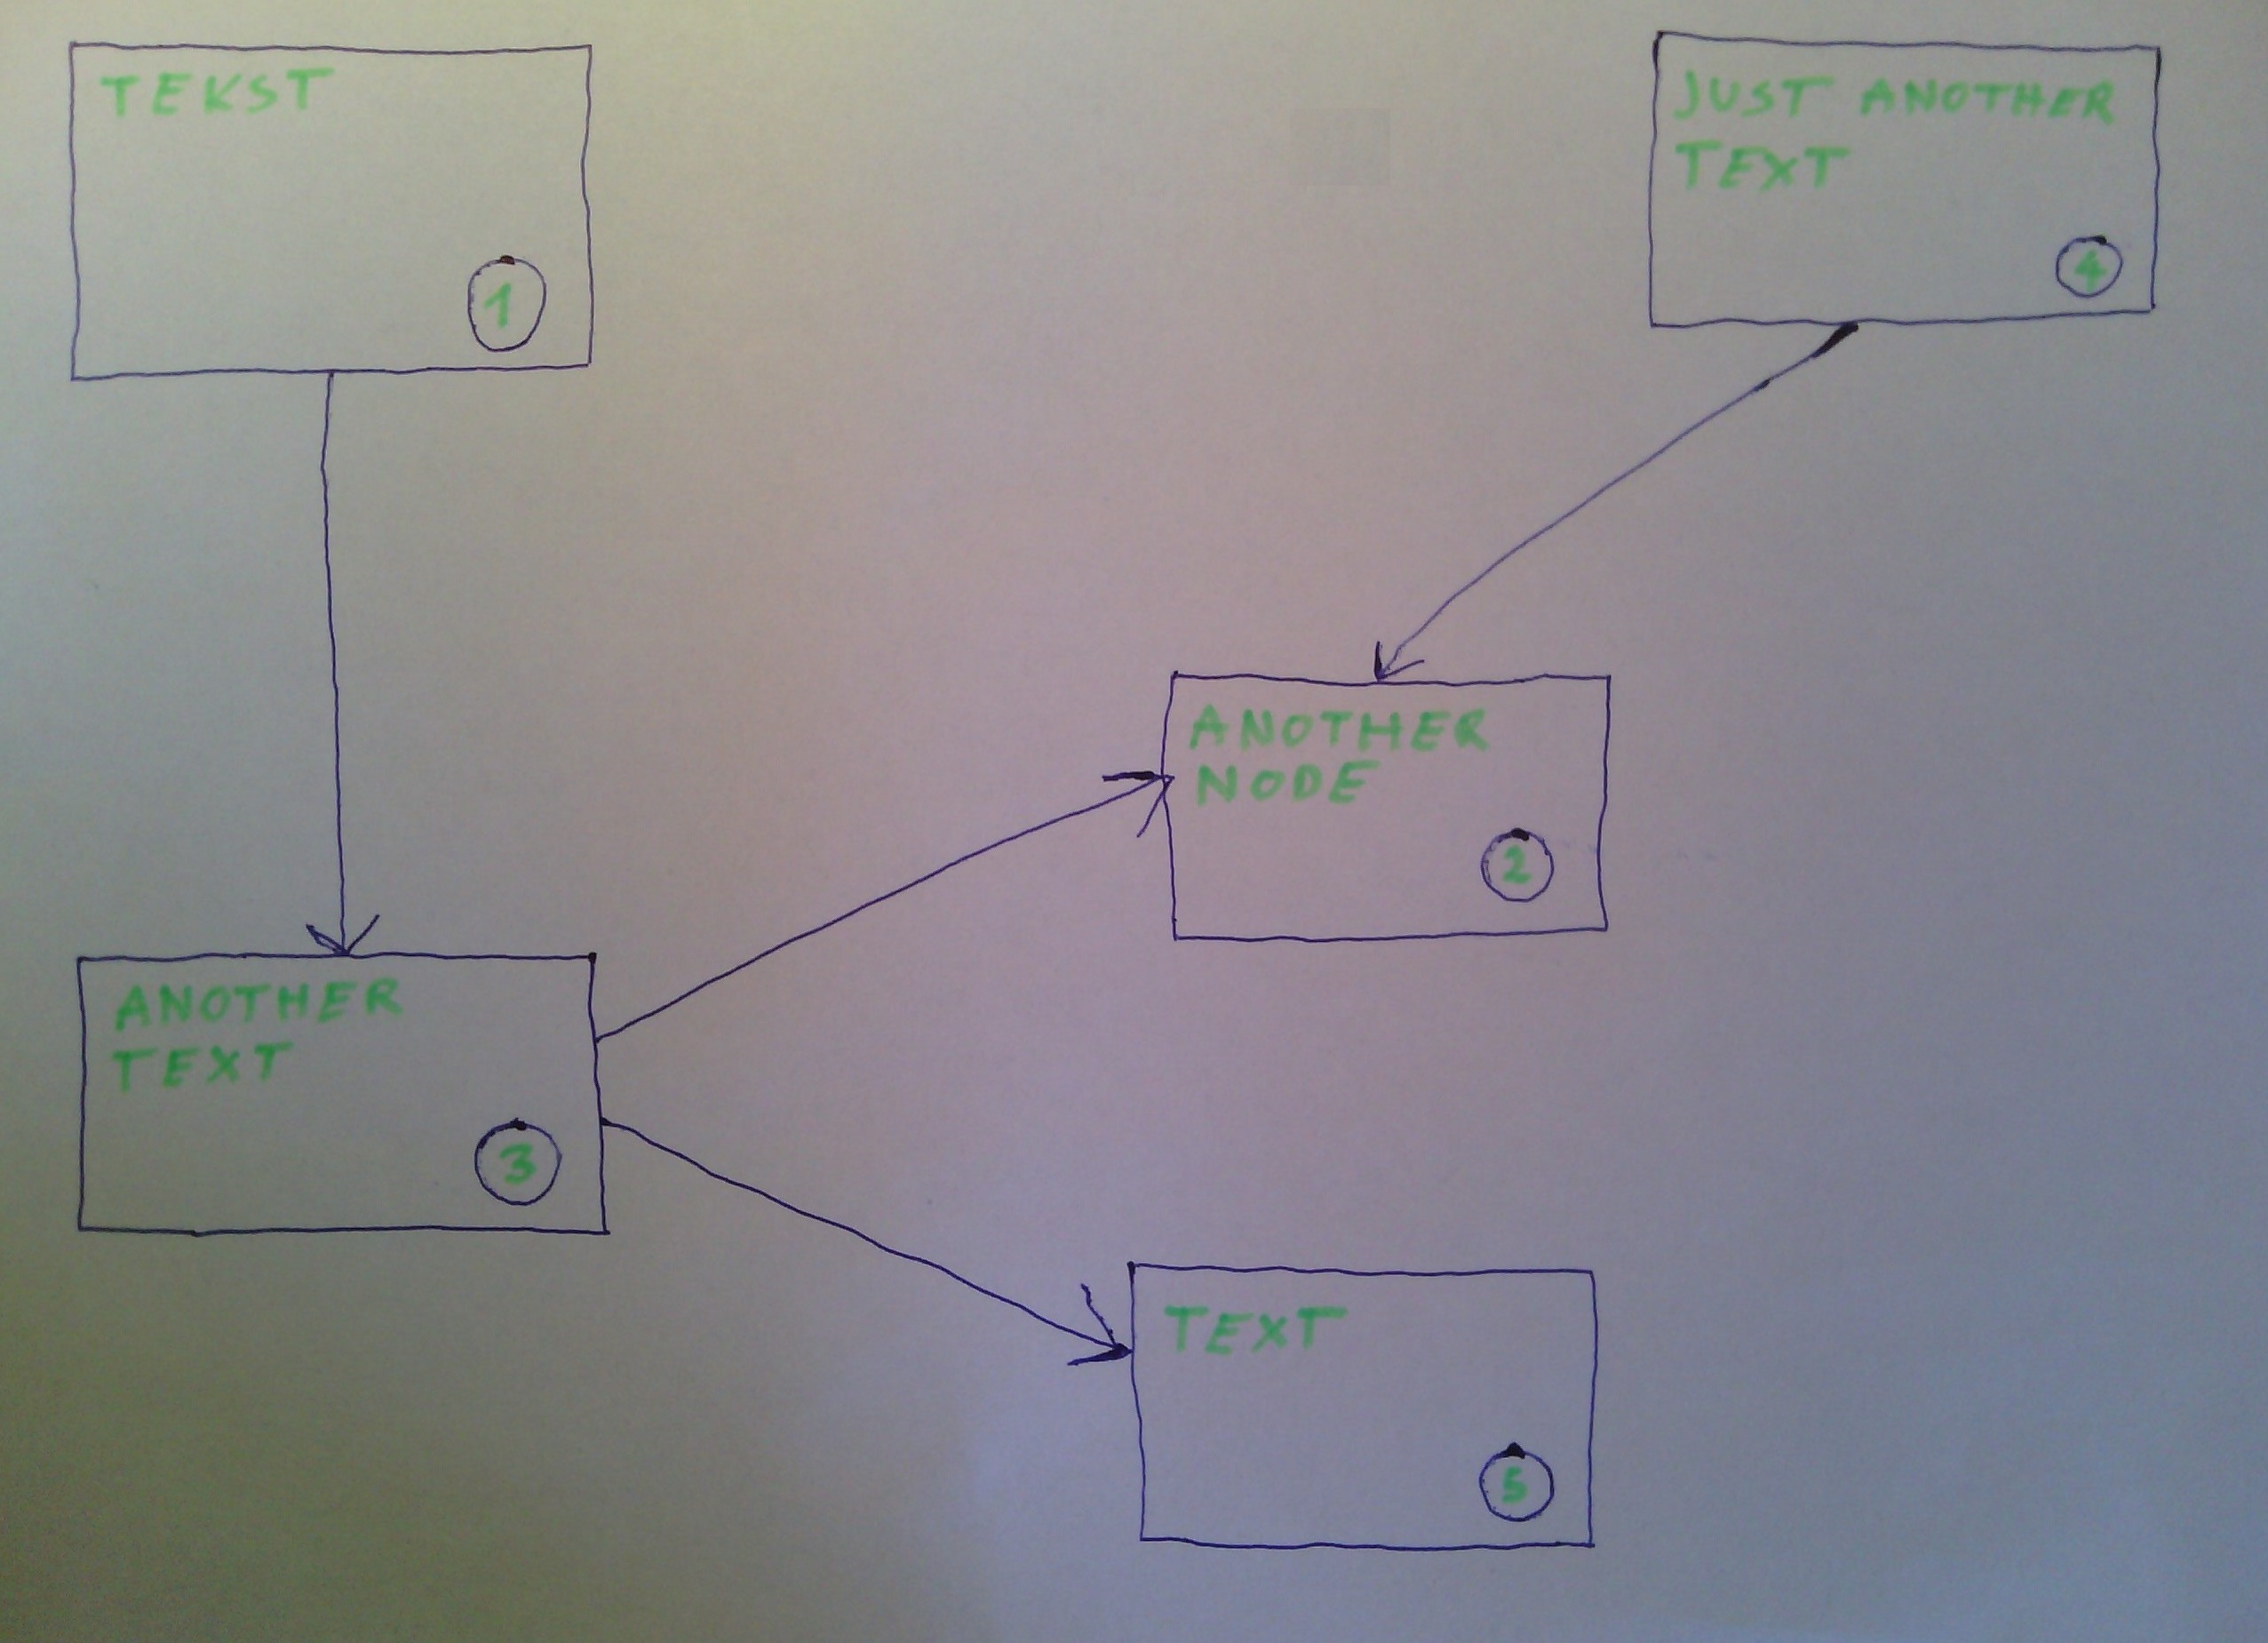 TEKST
1
JUST ANOTHER
TEXT
4
ANOTHER
NODE
2
ANOTHER
TEXT
3
TEXT
5